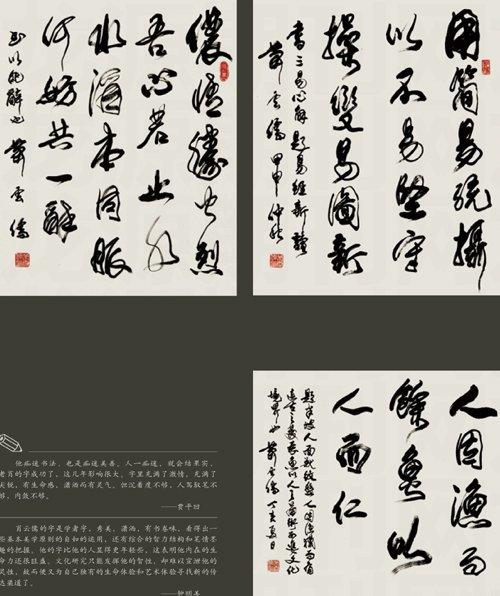 儂情勝火烈
吾心若止水
水酒本同脈
何妨共一醉
蕭雲儒
用簡易統攝
以不易堅守
操變易圖新
書三易心解
蕭雲儒 甲申仲秋
人因漁而
餘魚以
人而仁
蕭雲儒
他痴迷书法，也是痴迷美善。人一痴迷，就会结果实，
老肖的字成功了，这几年影响很大。字里充满了激情，充满了
尖锐，有生命感，潇洒而有灵气。但沉着度不够，人驾驭笔不
够，内敛不够。
——贾平凹
肖云儒的字是学者字，秀美，潇洒，有书卷味，看得出一
些基本美学原则的自如的运用，还有综合的智力结构和
趣的把握。他的字比他的人显得更年轻些，这表明他内在的生
命力还很旺盛。文化研究只能发挥他的智性，却难以宣泄他的
灵性，故而便又为自己独有的生命体验和艺术体验寻找新的传
达渠道了。
——钟明善